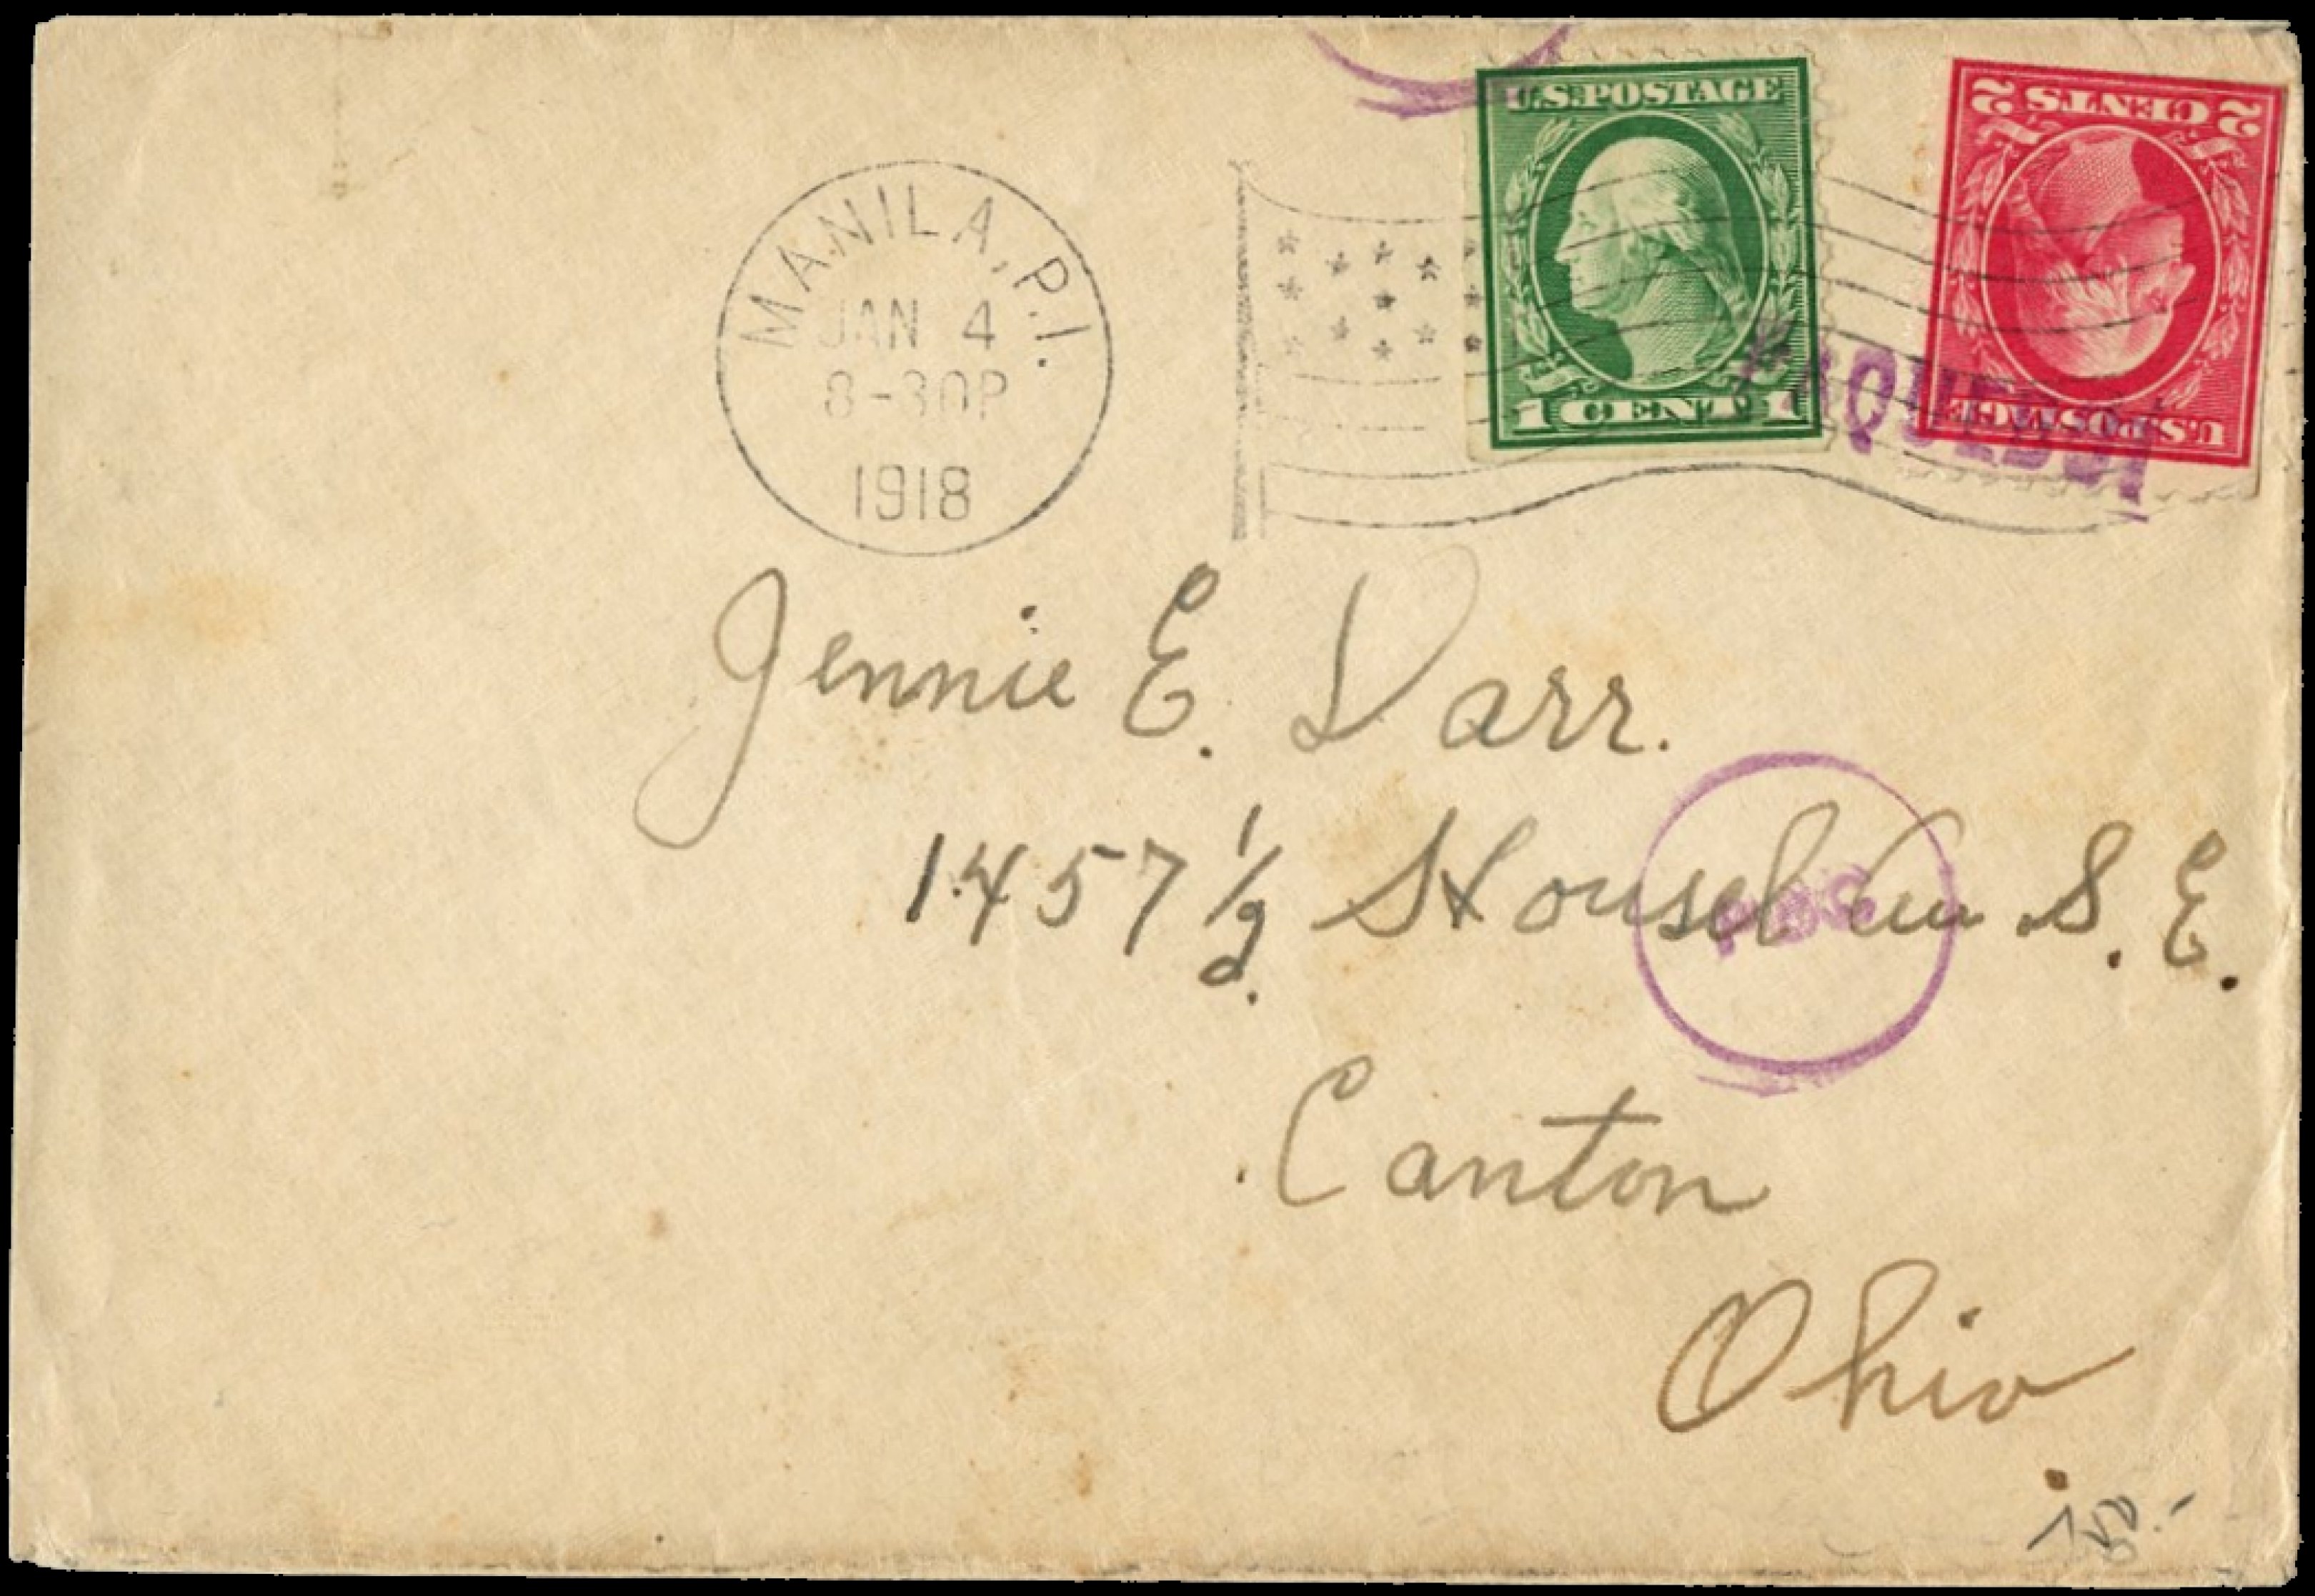 MANILA, P.I.
JAN 4
8-30P
1918
U.S. POSTAGE
1 CENT 1
2 CENTS 2
U.S. POSTAGE
PAQUEBOT
Jennie E. Darr.
1457 1/2 Housel Ave S. E.
Canton
Ohio